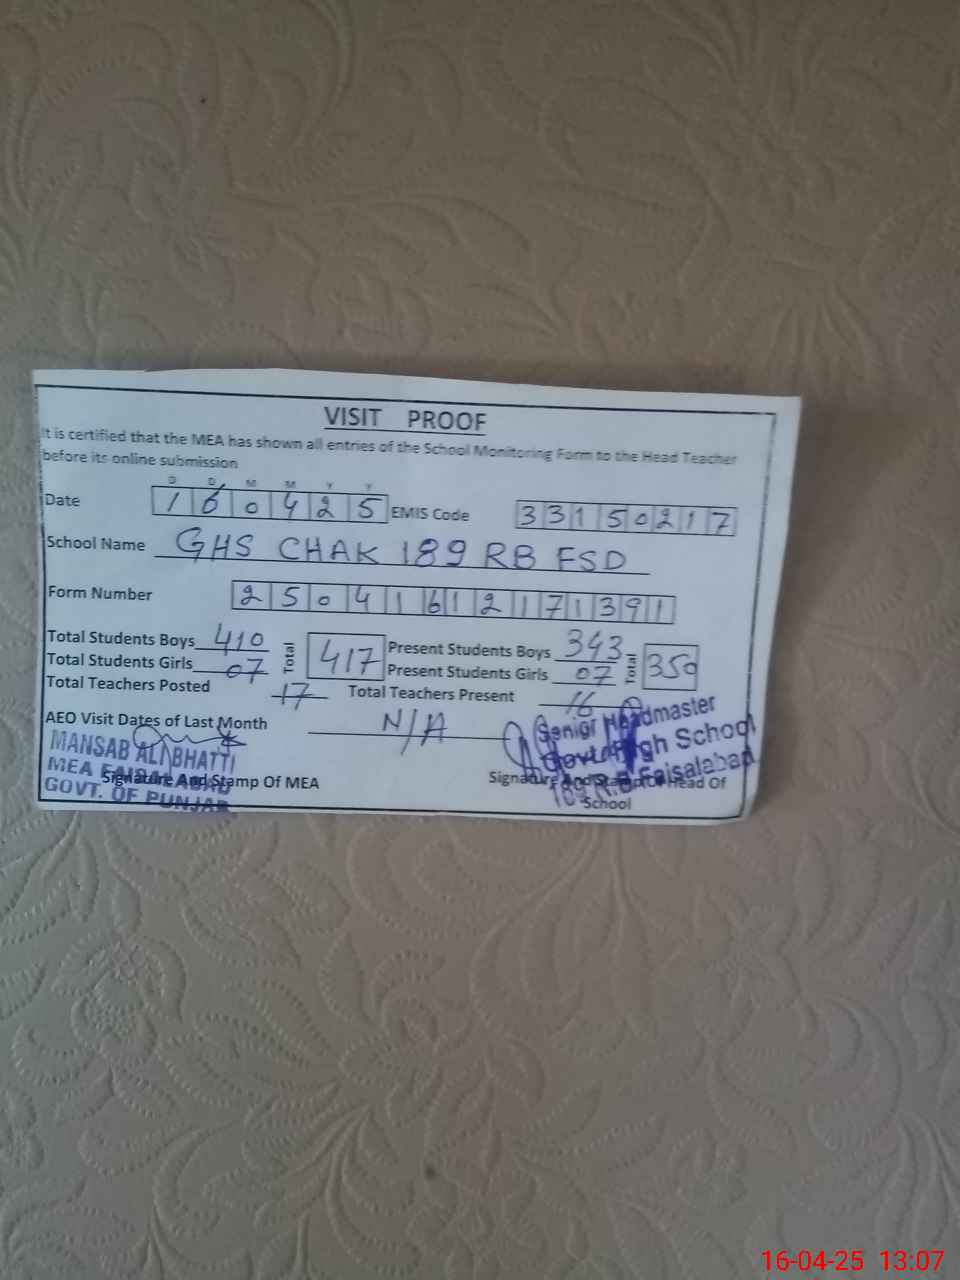 VISIT PROOF
It is certified that the MEA has shown all entries of the School Monitoring Form to the Head Teacher
before its online submission
D D M M Y Y
Date 1 6 0 4 2 5 EMIS Code 3 3 1 5 0 2 1 7
School Name GHS CHAK 189 RB FSD
Form Number 2 5 0 4 1 6 1 2 1 7 1 3 9 1
Total Students Boys 410 Total 417 Present Students Boys 343 Total 350
Total Students Girls 07 Present Students Girls 07
Total Teachers Posted 17 Total Teachers Present 16
AEO Visit Dates of Last Month N/A
MANSAB ALI BHATTI
MEA FAISALABAD
GOVT. OF PUNJAB
Signature And Stamp Of MEA
Senior Headmaster
Govt. High School
189 R.B Faisalabad
Signature And Stamp Of Head Of
School
16-04-25 13:07